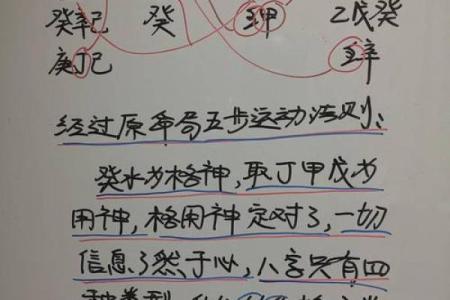 癸辛己 癸 壬甲 乙戊癸
庚丁己 壬辛
经过原命局五步运动法则:
癸水为格神,取丁甲戊为
用神,格用神定对了,一切
信息了然于心,八字只有四
种类型